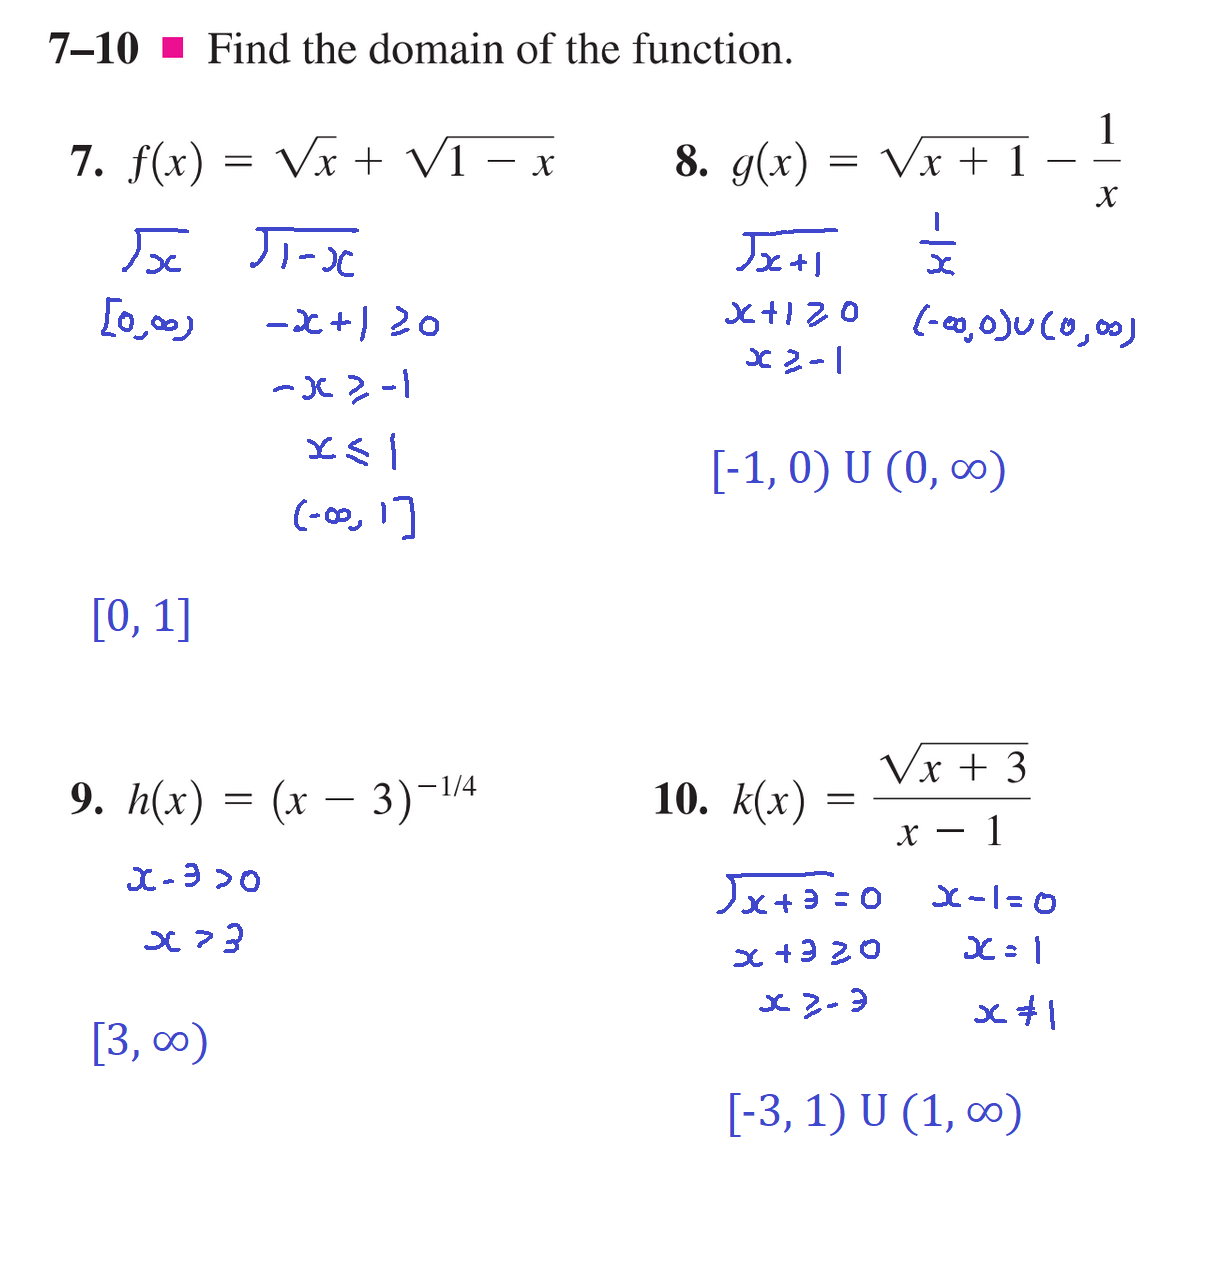 7–10 ■ Find the domain of the function.
7. f(x) = √x + √(1 − x)
√x √(1-x)
[0,∞) -x+1 ≥ 0
-x ≥ -1
x ≤ 1
(-∞, 1]
[0, 1]
8. g(x) = √(x + 1) − 1/x
√(x+1) 1/x
x+1 ≥ 0 (-∞,0)∪(0,∞)
x ≥ -1
[-1, 0) U (0, ∞)
9. h(x) = (x − 3)^(−1/4)
x-3 >0
x > 3
[3, ∞)
10. k(x) = √(x + 3) / (x − 1)
√(x+3) = 0 x-1= 0
x+3 ≥ 0 x = 1
x ≥ -3 x ≠ 1
[-3, 1) U (1, ∞)